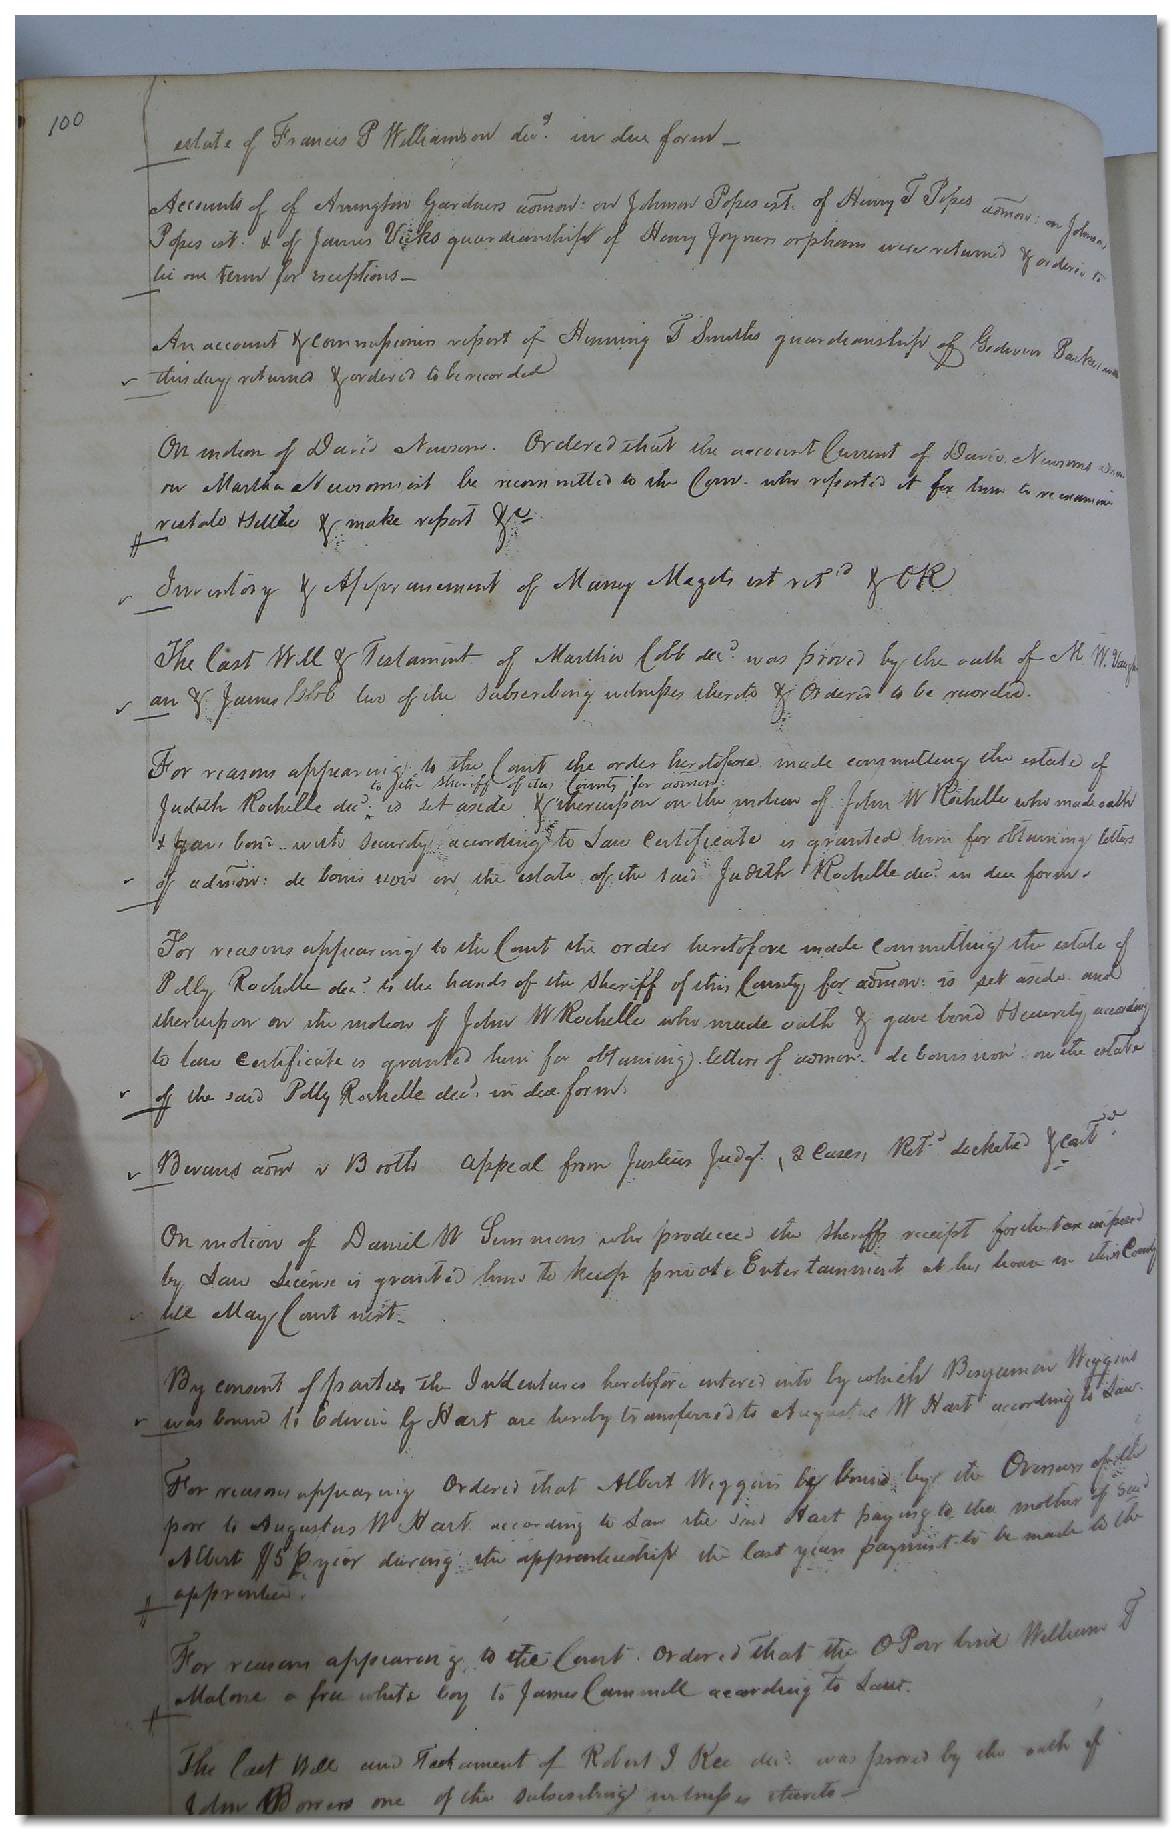 100
estate of Francis P Williamson decd. in due form —
Accounts of of Arrington Gardners admon: on Johnson Popes est. of Henry T Popes admon: on Johnson
Popes est. & of James Vicks guardianship of Henry Joyners orphans were returned & ordered to
lie one term for exceptions —
An account & commissioners report of Henning T Smiths guardianship of Parker
this day returned & ordered to be recorded
On motion of David Newsom. Ordered that the account Current of David Newsoms
on Martha Newsoms est be recommitted to the Com. who reported it for them to reexamine
restate & settle & make report &c
Inventory & Appraisement of est retd & OR
The last Will & Testament of Martha Cobb decd. was proved by the oath of M W Vaugh
an & James Cobb two of the subscribing witnesses thereto & Ordered to be recorded.
For reasons appearing to the Court the order heretofore made committing the estate of
to the Sheriff of this County for admon:
Judith Rochelle decd. is set aside & thereupon on the motion of John W Rochelle who made oath
& gave bond with security according to Law Certificate is granted him for obtaining letters
of admon: de bonis non on the estate of the said Judith Rochelle decd. in due form.
For reasons appearing to the Court the order heretofore made committing the estate of
Polly Rochelle decd. to the hands of the Sheriff of this County for admon: is set aside and
thereupon on the motion of John W Rochelle who made oath & gave bond & Security according
to law certificate is granted him for obtaining letters of admon. de bonis non on the estate
of the said Polly Rochelle decd. in due form.
Bevans admr v Booth appeal from Justices Judgt. , 2 Cases, Retd docketed & contd.
On motion of Daniel W Simmons who produced the Sheriffs receipt for the tax imposed
by Law License is granted him to keep private Entertainment at his house in this County
till May Court next —
By consent of parties the Indentures heretofore entered into by which Benjamin Wiggins
was bound to Edwin G Hart are hereby transferred to Augustus W Hart according to Law.
For reasons appearing Ordered that Albert Wiggins be bound by the Overseers of the
poor to Augustus W Hart according to Law the said Hart paying to the mother of said
Albert $5 p year during the apprenticeship the last years payment to be made to the
apprentice.
For reasons appearing to the Court. Ordered that the O Poor bind William T
Malone a free white boy to James Cammell according to Law.
The last Will and Testament of Robert J Kee decd. was proved by the oath of
John one of the subscribing witnesses thereto —